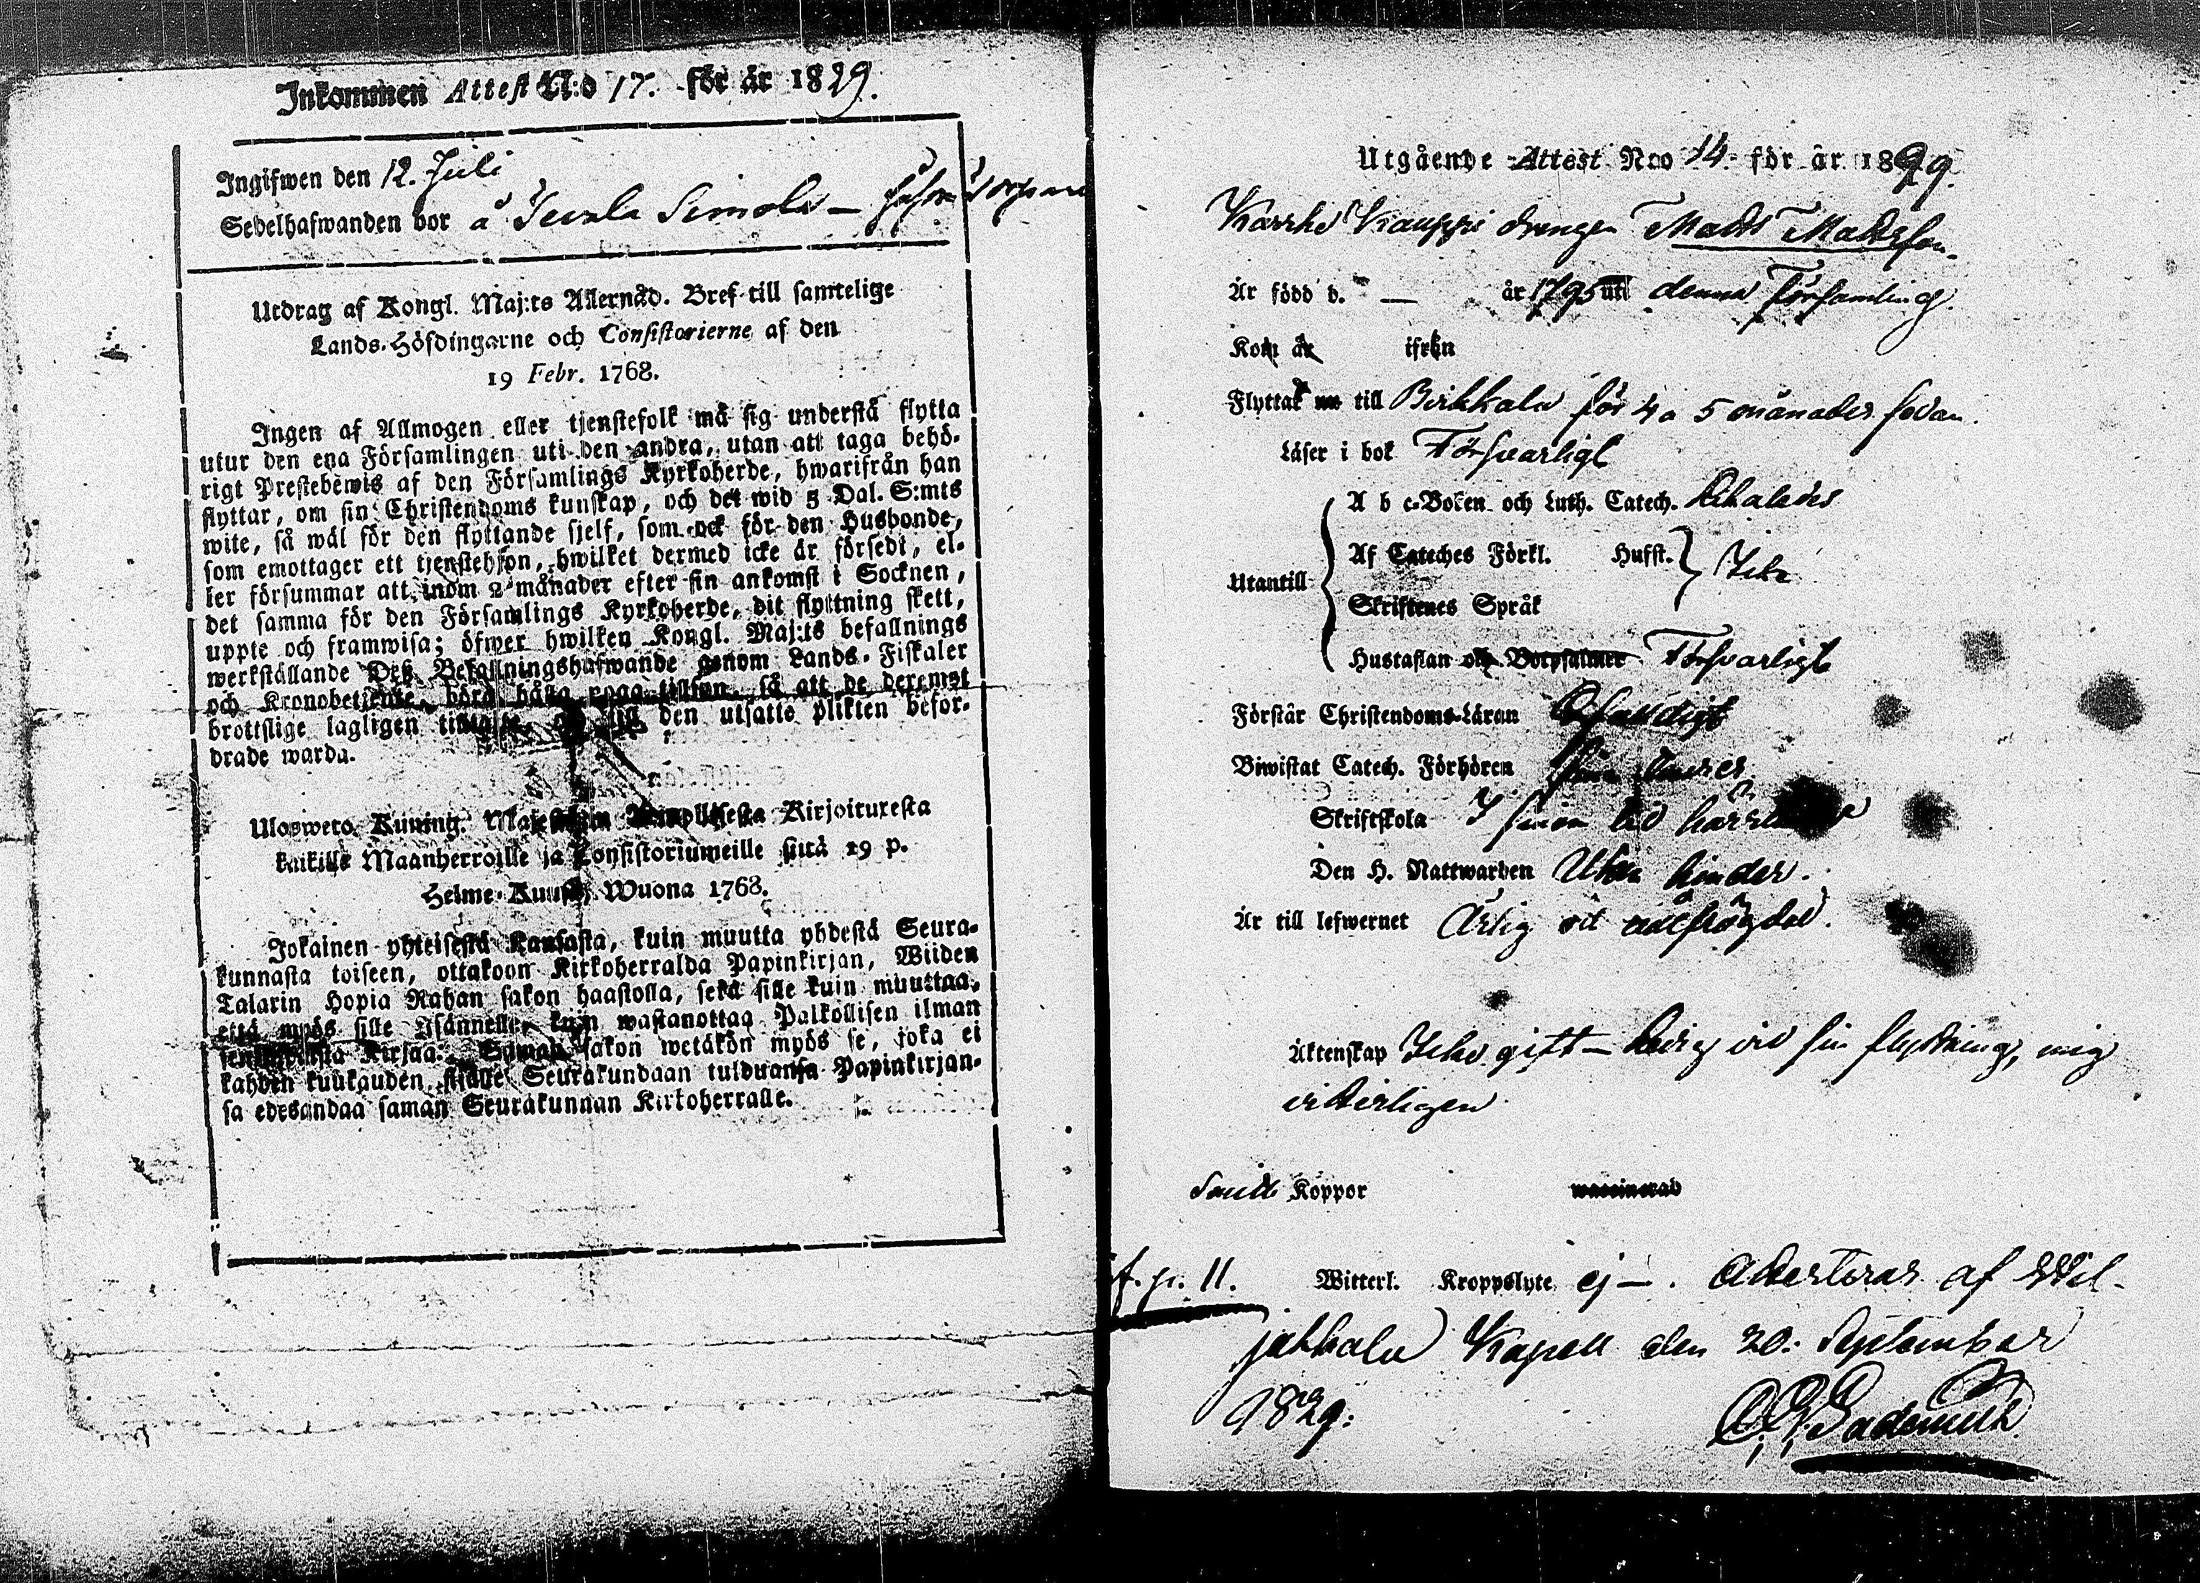 Inkommen Attest N:o 17. för år 1829.
Ingifwen den 12. Juli
Sedelhafwanden bor å Simola —
Utdrag af Kongl. Maj:ts Allernåd. Bref till samtelige
Lands-Höfdingarne och Consistorierne af den
19 Febr. 1768.
Ingen af Allmogen eller tjenstefolk må sig understå flytta
utur den ena Församlingen uti den andra, utan att taga behö-
rigt Prestebewis af den Församlings Kyrkoherde, hwarifrån han
flyttar, om sin Christendoms kunskap, och det wid 5 Dal. S:mts
wite, så wäl för den flyttande sjelf, som ock för den Husbonde,
som emottager ett tjenstehjon, hwilket dermed icke är försedt, el-
ler försummar att inom 2 månader efter sin ankomst i Socknen,
det samma för den Församlings Kyrkoherde, dit flyttning skett,
uppte och framwisa; öfwer hwilken Kongl. Maj:ts befallnings
werkställande Deß Befallningshafwande genom Lands-Fiskaler
och Kronobetjente, böra hålla noga tillsyn, så att de deremot
brottslige lagligen den utsatte plikten befor-
drade warda.
Ulosweto Kuning. Kirjoituxesta
kaikille Maanherroille ja Consistoriumeille siitä 19 p.
Helme-Kuusa, Wuona 1768.
Jokainen yhteisestä Kansasta, kuin muutta yhdestä Seura-
kunnasta toiseen, ottakoon Kirkoherralda Papinkirjan, Wiiden
Talarin Hopia Rahan sakon haastolla, sekä sille kuin muuttaa,
että myös sille Isännelle, kuin wastanottaa Palkollisen ilman
Kirjaa. Saman sakon wetäkön myös se, joka ei
kahden kuukauden sisälle Seurakundaan tulduansa Papinkirjan-
sa edesandaa saman Seurakunnan Kirkoherralle.
Utgående Attest N:o 14 för år 1829.
Karhe Kauppi drengen Matts Mattsson
Är född d. — år 1795 uti denna Församling.
Kom år ifrån
Flyttar till Birkkala för 4 a 5 månader sedan.
Läser i bok Försvarligt
Utantill
A b c-Boken och Luth. Catech.
Af Cateches Förkl. Husst. Icke
Skriftenes Språk
Hustaflan och Botpsalmer Försvarligt
Förstår Christendoms-Läran
Biwistat Catech. Förhören
Skriftskola I sin tid
Den H. Nattwarden Utan hinder.
Är till lefwernet Ärlig och
Äktenskap Icke gift — ledig vid sin flyttning, mig
vitterligen
Koppor waccinerad
f. p. 11. Witterl. Kroppslyte ej —. Attesteras af Wil-
jakkala Kapell den 20. September
1829.